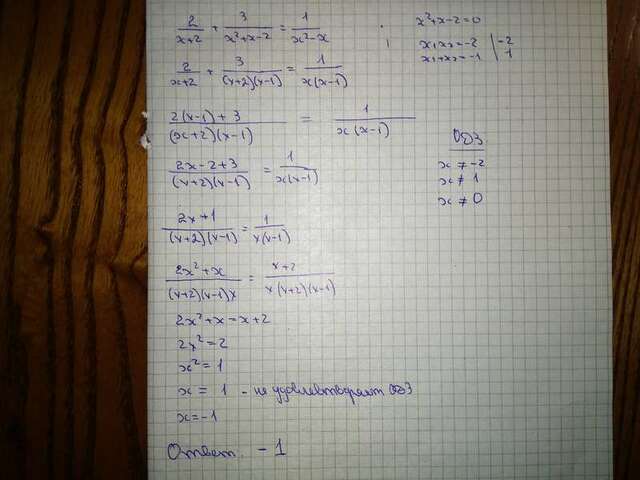 2/(x+2) + 3/(x²+x-2) = 1/(x²-x)
x²+x-2=0
x₁x₂=-2 | -2
x₁+x₂=-1 | 1
2/(x+2) + 3/((x+2)(x-1)) = 1/(x(x-1))
(2(x-1)+3)/((x+2)(x-1)) = 1/(x(x-1))
ОДЗ
x ≠ -2
x ≠ 1
x ≠ 0
(2x-2+3)/((x+2)(x-1)) = 1/(x(x-1))
(2x+1)/((x+2)(x-1)) = 1/(x(x-1))
(2x²+x)/((x+2)(x-1)x) = (x+2)/(x(x+2)(x-1))
2x²+x=x+2
2x²=2
x²=1
x = 1 - не удовлетворяет ОДЗ
x=-1
Ответ. -1